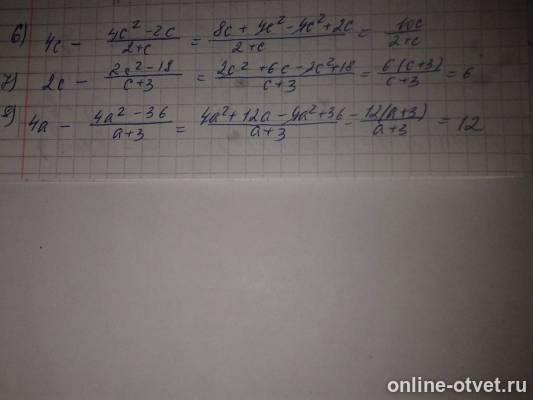 6) 4c - (4c² - 2c)/(2+c) = (8c + 4c² - 4c² + 2c)/(2+c) = 10c/(2+c)
7) 2c - (2c² - 18)/(c+3) = (2c² + 6c - 2c² + 18)/(c+3) = 6(c+3)/(c+3) = 6
8) 4a - (4a² - 36)/(a+3) = (4a² + 12a - 4a² + 36)/(a+3) = 12(a+3)/(a+3) = 12
online-otvet.ru